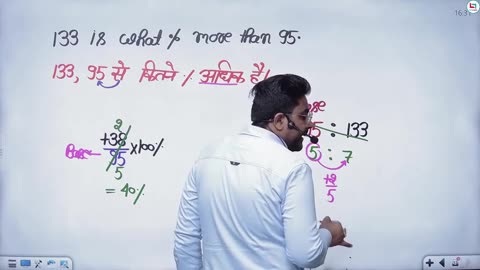 133 is what % more than 95.
133, 95 से कितने % अधिक है?
2
+38
Base 95 ×100%
5
= 40%
: 133
5 : 7
+2
5
16:31